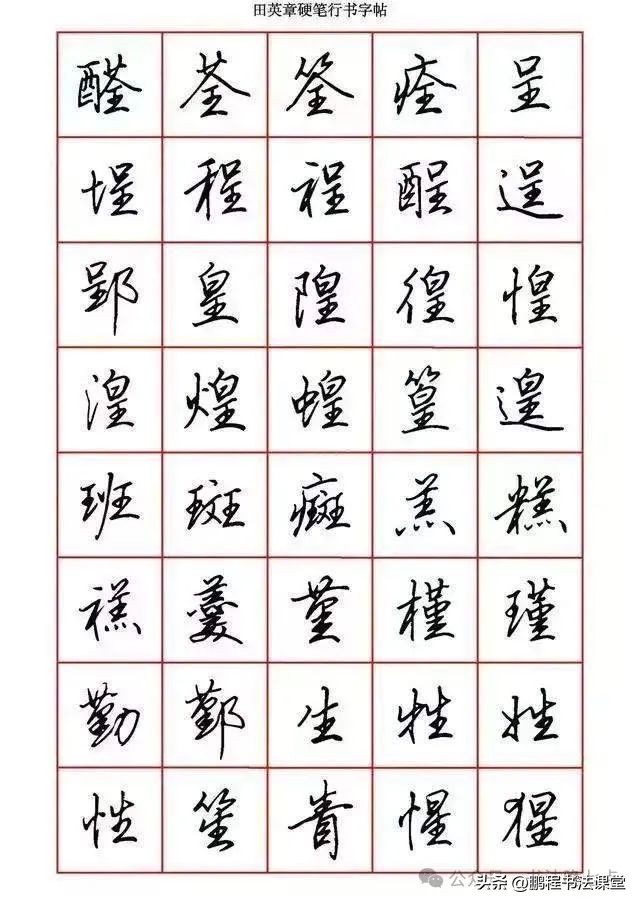 田英章硬笔行书字帖
醛 荃 筌 痊 呈
埕 程 裎 酲 逞
郢 皇 隍 徨 惶
湟 煌 蝗 篁 遑
班 斑 癍 羔 糕
禚 羹 堇 槿 瑾
勤 鄞 生 牲 姓
性 笙 眚 惺 猩
公众号
头条 @鹏程书法课堂